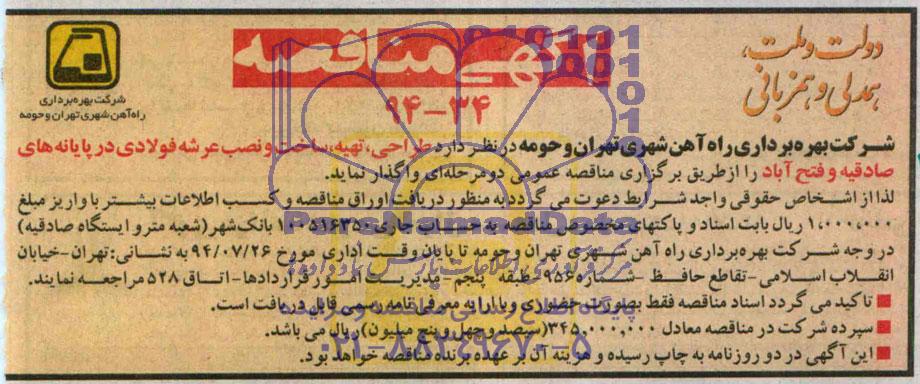 دولت و ملت،
همدلی و همزبانی
آگهی مناقصه
۹۴-۳۴
شرکت بهره برداری
راه آهن شهری تهران و حومه
شرکت بهره برداری راه آهن شهری تهران و حومه در نظر دارد طراحی، تهیه، ساخت و نصب عرشه فولادی در پایانه های
صادقیه و فتح آباد را از طریق برگزاری مناقصه عمومی دو مرحله‌ای واگذار نماید.
لذا از اشخاص حقوقی واجد شرایط دعوت می گردد به منظور دریافت اوراق مناقصه و کسب اطلاعات بیشتر با واریز مبلغ
۱,۰۰۰,۰۰۰ ریال بابت اسناد و پاکتهای مخصوص مناقصه به حساب جاری بانک شهر (شعبه مترو ایستگاه صادقیه)
در وجه شرکت بهره برداری راه آهن شهری تهران و حومه تا پایان وقت اداری مورخ ۹۴/۰۷/۲۶ به نشانی: تهران-خیابان
انقلاب اسلامی-تقاطع حافظ - شماره ۹۵۶ طبقه پنجم - مدیریت امور قراردادها-اتاق ۵۲۸ مراجعه نمایند.
تاکید می گردد اسناد مناقصه فقط بصورت حضوری و با ارائه معرفی نامه رسمی قابل دریافت است.
سپرده شرکت در مناقصه معادل ۳۴۵,۰۰۰,۰۰۰ (سیصد و چهل و پنج میلیون) ریال می باشد.
این آگهی در دو روزنامه به چاپ رسیده و هزینه آن بر عهده برنده مناقصه خواهد بود.
ParsNamadData
پایگاه اطلاع رسانی مناقصه و مزایده
۰۲۱-۸۸۳۴۹۶۷۰-۵